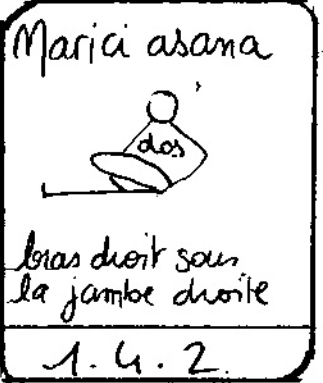 Marici asana
dos
bras droit sous
la jambe droite
1.4.2.